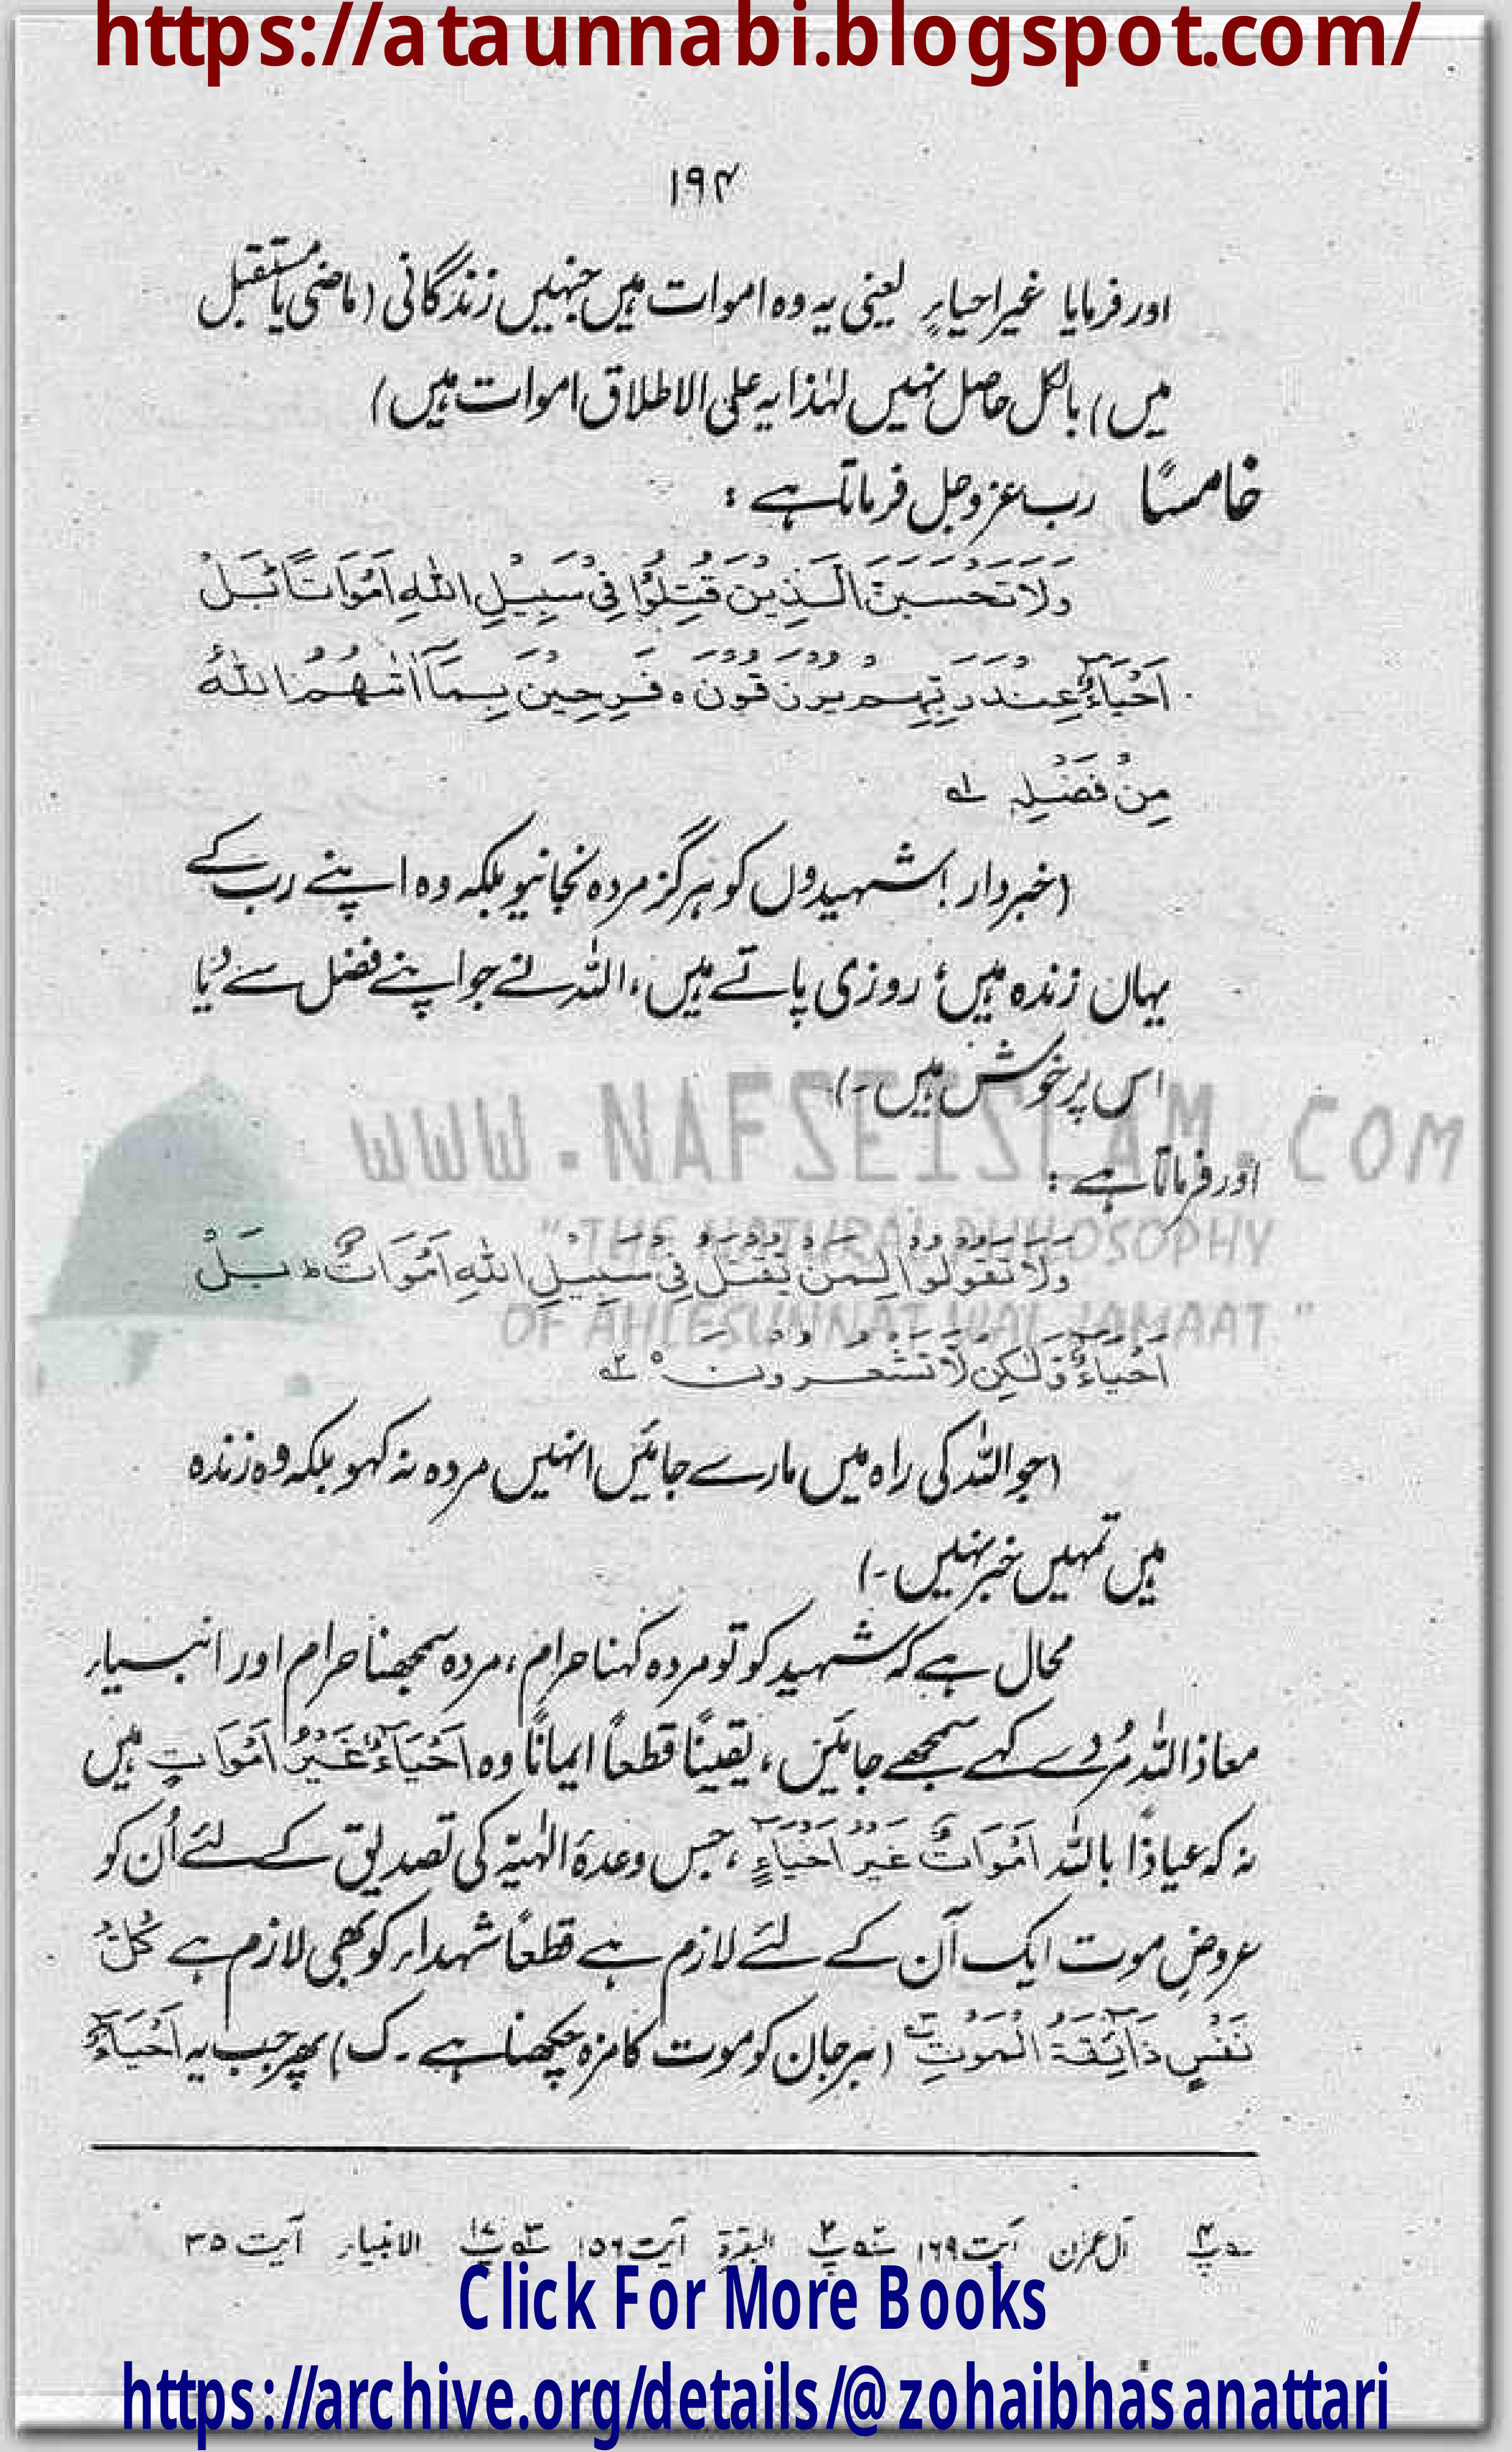 https://ataunnabi.blogspot.com/
۱۹۴
اور فرمایا غیر احیاءٍ یعنی یہ وہ اموات ہیں جنہیں زندگانی (ماضی یا مستقبل
میں) بالکل حاصل نہیں لہٰذا یہ علی الاطلاق اموات ہیں)
خامسًا رب عزوجل فرماتا ہے :
وَلَا تَحْسَبَنَّ الَّذِيْنَ قُتِلُوْا فِيْ سَبِيْلِ اللّٰهِ اَمْوَاتًا بَلْ
اَحْيَآءٌ عِنْدَ رَبِّهِمْ يُرْزَقُوْنَ ہ فَرِحِيْنَ بِمَآ اٰتٰهُمُ اللّٰهُ
مِنْ فَضْلِهٖ ۱؎
(خبردار! شہیدوں کو ہرگز مردہ نجانیو بلکہ وہ اپنے رب کے
یہاں زندہ ہیں، روزی پاتے ہیں، اللہ نے جو اپنے فضل سے دیا
اس پر خوش ہیں۔)
WWW.NAFSEISLAM.COM
اور فرماتا ہے :
"THE NATURAL PHILOSOPHY
وَلَا تَقُوْلُوْا لِمَنْ يُّقْتَلُ فِيْ سَبِيْلِ اللّٰهِ اَمْوَاتٌ ط بَلْ
OF AHLESUNNAT WAL JAMAAT"
اَحْيَآءٌ وَّلٰكِنْ لَّا تَشْعُرُوْنَ ہ ۲؎
(جو اللہ کی راہ میں مارے جائیں انہیں مردہ نہ کہو بلکہ وہ زندہ
ہیں تمہیں خبر نہیں۔)
محال ہے کہ شہید کو تو مردہ کہنا حرام، مردہ سمجھنا حرام اور انبیاء
معاذ اللہ مُردے کہے سمجھے جائیں، یقینًا قطعًا ایمانًا وہ اَحْيَآءٌ غَيْرُ اَمْوَاتٍ ہیں
نہ کہ عیاذًا باللہ اَمْوَاتٌ غَيْرُ اَحْيَآءٍ، جس وعدۂ الٰہیہ کی تصدیق کے لئے اُن کو
عروضِ موت ایک آن کے لئے لازم ہے قطعًا شہداء کو بھی لازم ہے كُلُّ
نَفْسٍ ذَآئِقَةُ الْمَوْتِ ۳؎ (ہر جان کو موت کا مزہ چکھنا ہے۔ ک) پھر جب یہ اَحْيَآءٌ
۱؎ پ۴ آل عمرٰن آیت ۱۶۹ ۲؎ پ۲ البقرۃ آیت ۱۵۶ ۳؎ پ۱۷ الانبیاء آیت ۳۵
Click For More Books
https://archive.org/details/@zohaibhasanattari